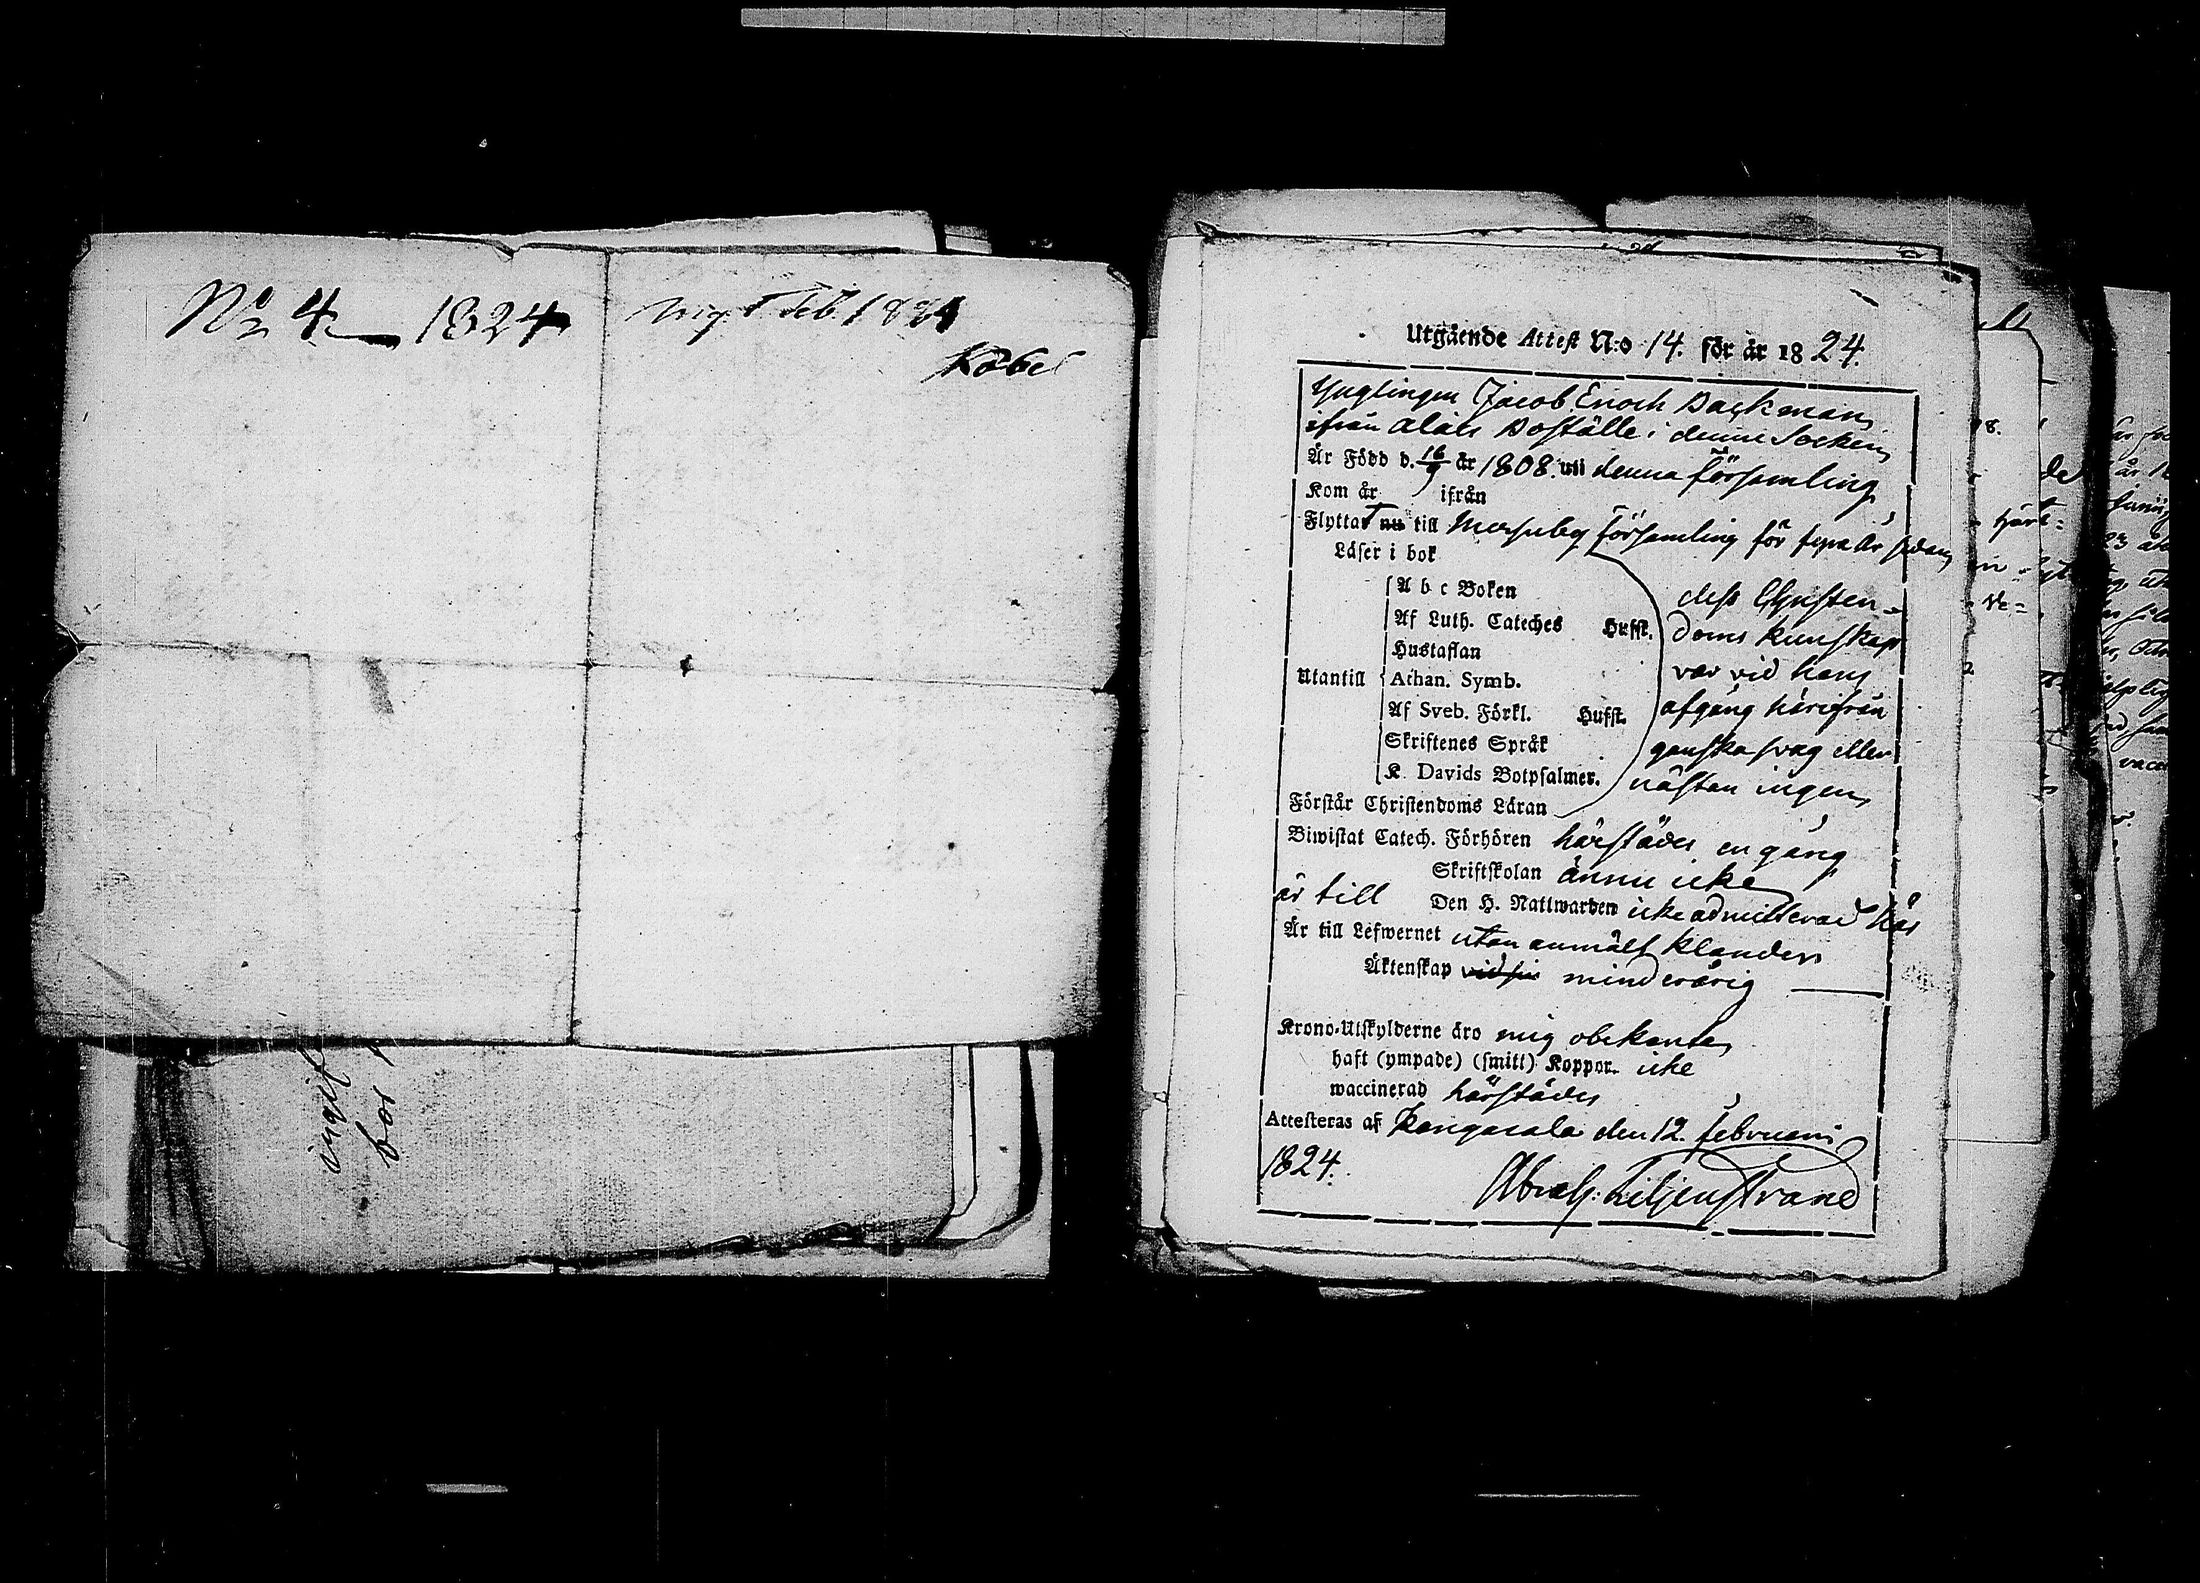 No 4 — 1824
Feb. 1824
ingif
bor
Utgående Attest N:o 14. för år 1824.
Ynglingen Jacob Enoch Backman
ifrån Boställe i denne Socken
Är Född d. 16/9 år 1808. uti denna Församling
Kom år ifrån
Flyttat nu till Messuby Församling för fyra år sedan
Läser i bok
A b c Boken
dess Christen-
Af Luth. Cateches Hufst.
doms kunskap
Hustaflan
var vid hans
Utantill Athan. Symb.
afgång härifrån
Af Sveb. Förkl. Hufst.
ganska svag eller
Skriftenes Språk
nästan ingen
K. Davids Botpsalmer.
Förstår Christendoms Läran
Biwistat Catech. Förhören härstädes en gång
Skriftskolan ännu icke
är till Den H. Nattwarden icke admitterad här
Är till Lefwernet utan anmält klander
Äktenskap minderårig
Krono-Utskylderne äro mig obekanta
haft (ympade) (smitt) Koppor. icke
waccinerad härstädes
Attesteras af Kangasala den 12. Februarii
1824.
Abrah: Liljenstrand